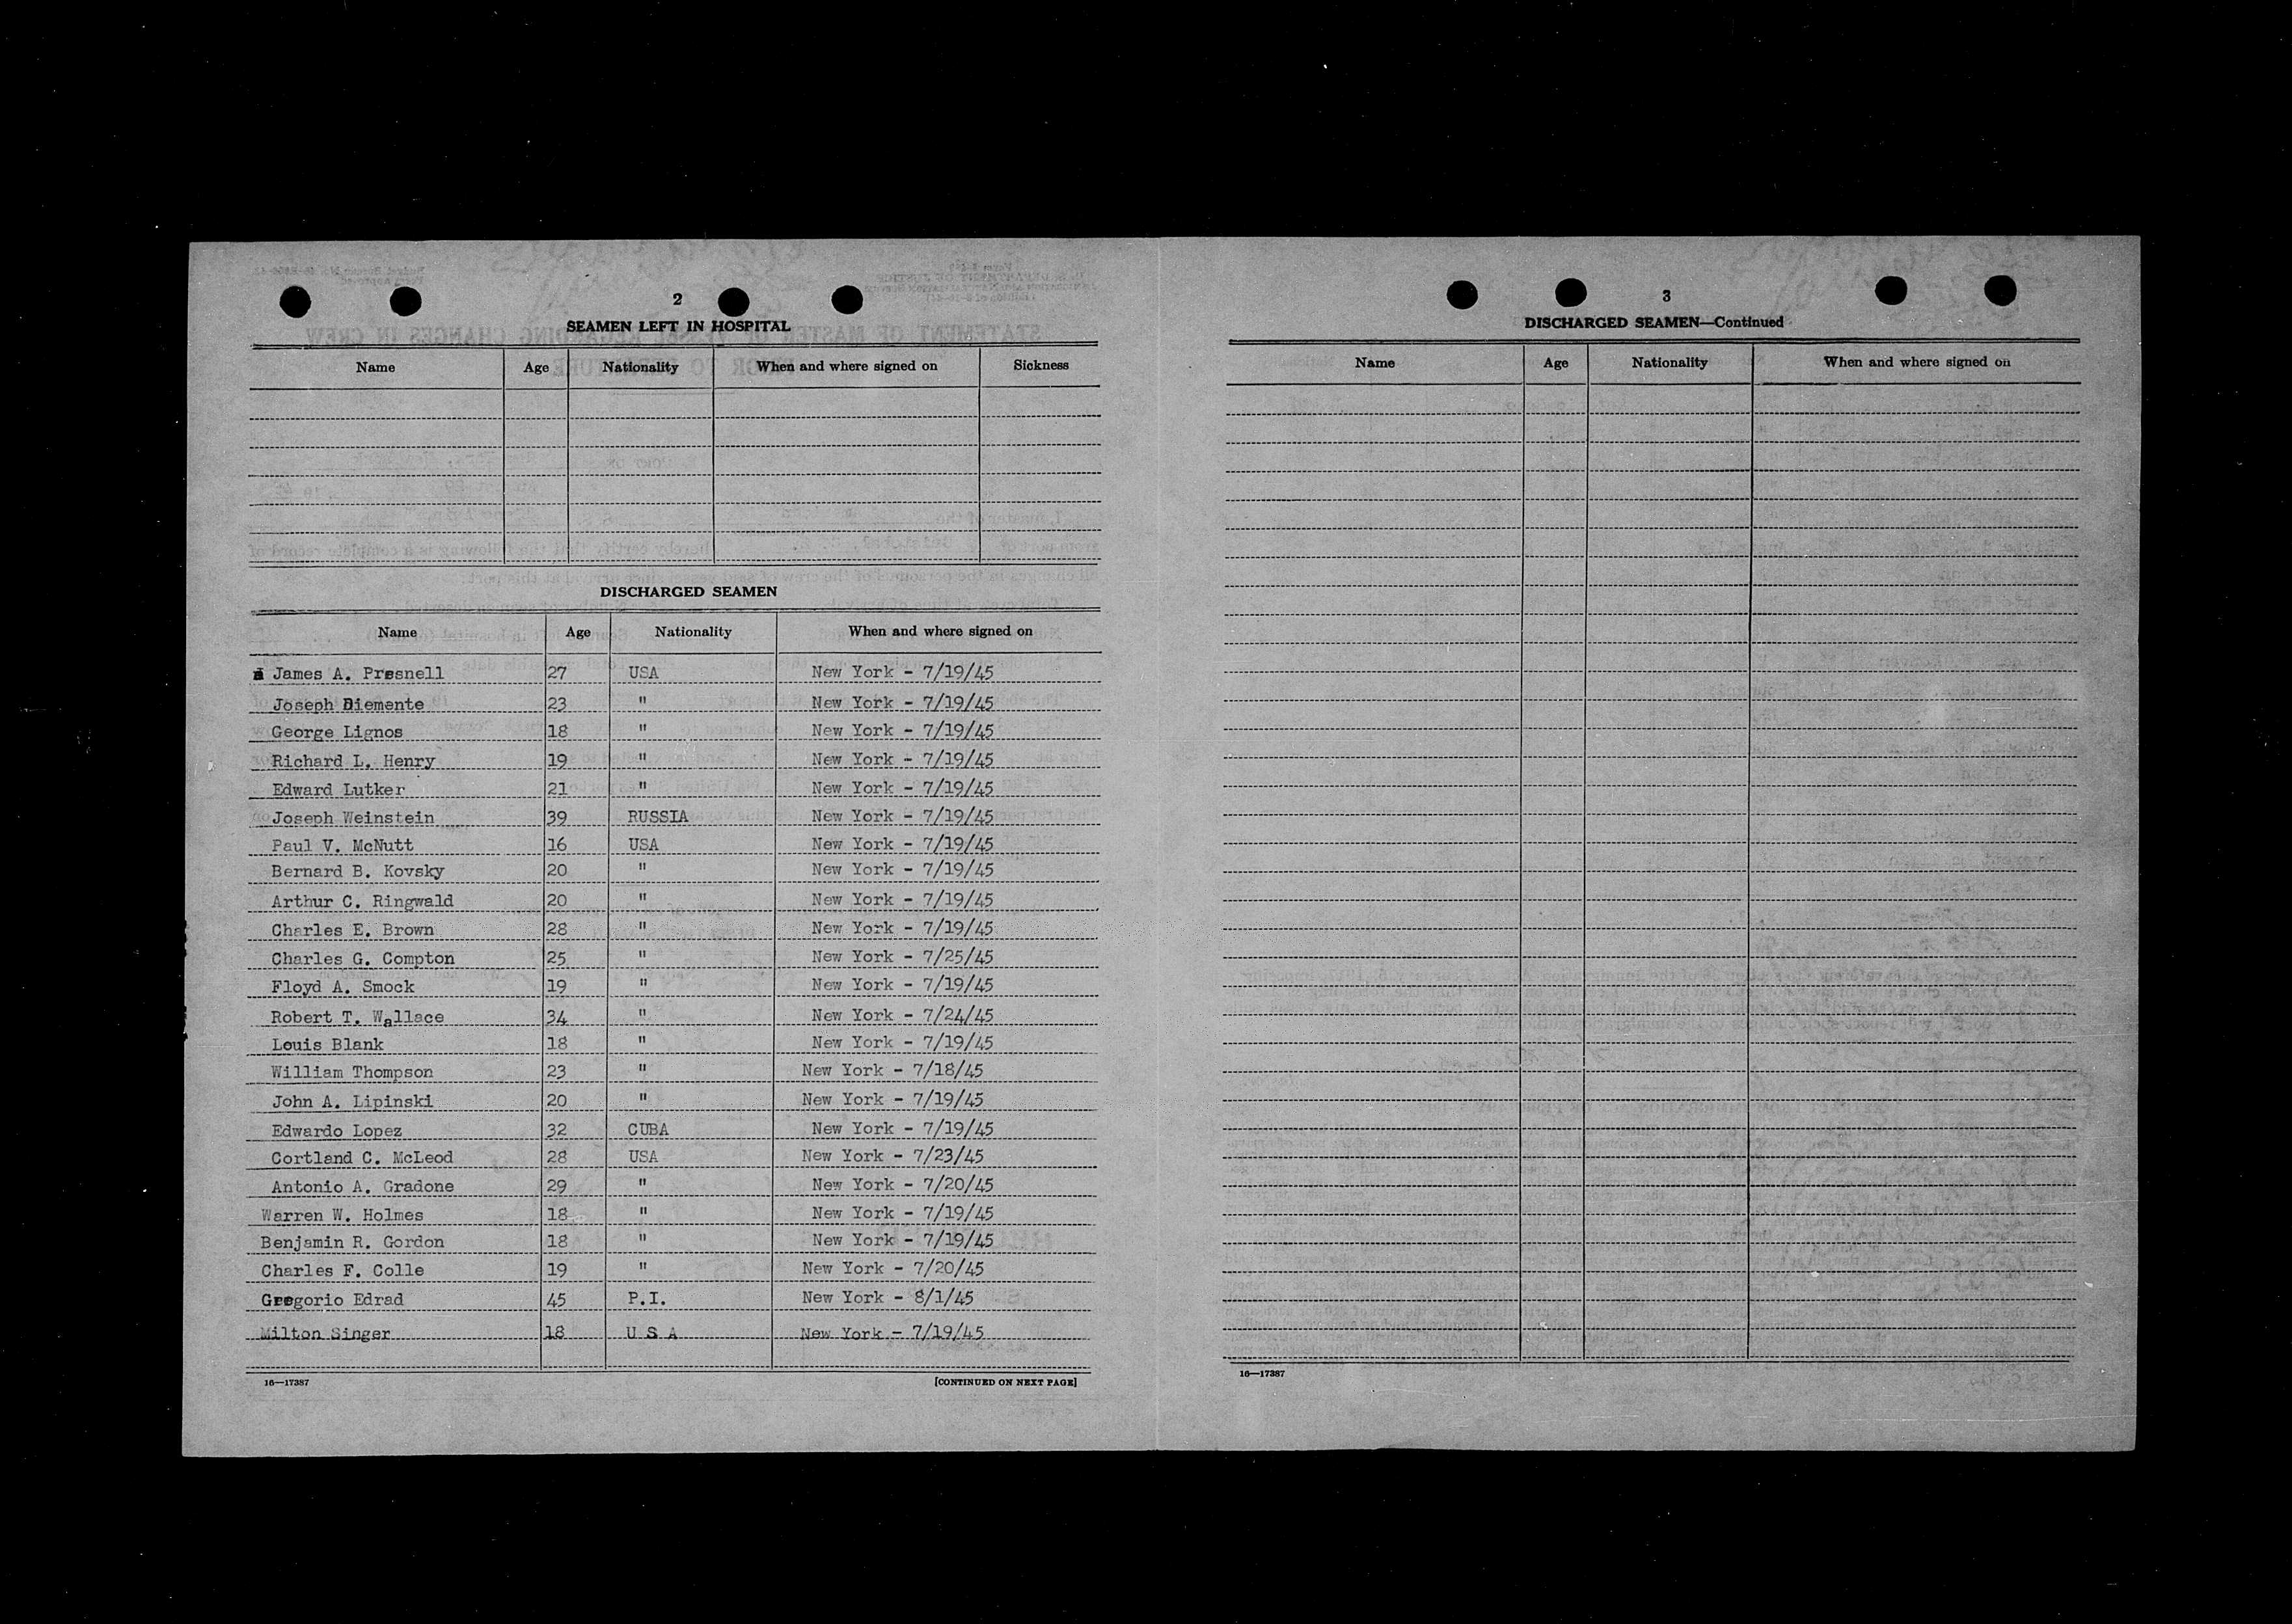 2
SEAMEN LEFT IN HOSPITAL
Name Age Nationality When and where signed on Sickness
DISCHARGED SEAMEN
Name Age Nationality When and where signed on
James A. Presnell 27 USA New York - 7/19/45
Joseph Diemente 23 " New York - 7/19/45
George Lignos 18 " New York - 7/19/45
Richard L. Henry 19 " New York - 7/19/45
Edward Lutker 21 " New York - 7/19/45
Joseph Weinstein 39 RUSSIA New York - 7/19/45
Paul V. McNutt 16 USA New York - 7/19/45
Bernard B. Kovsky 20 " New York - 7/19/45
Arthur C. Ringwald 20 " New York - 7/19/45
Charles E. Brown 28 " New York - 7/19/45
Charles G. Compton 25 " New York - 7/25/45
Floyd A. Smock 19 " New York - 7/19/45
Robert T. Wallace 34 " New York - 7/24/45
Louis Blank 18 " New York - 7/19/45
William Thompson 23 " New York - 7/18/45
John A. Lipinski 20 " New York - 7/19/45
Edwardo Lopez 32 CUBA New York - 7/19/45
Cortland C. McLeod 28 USA New York - 7/23/45
Antonio A. Gradone 29 " New York - 7/20/45
Warren W. Holmes 18 " New York - 7/19/45
Benjamin R. Gordon 18 " New York - 7/19/45
Charles F. Colle 19 " New York - 7/20/45
Gregorio Edrad 45 P.I. New York - 8/1/45
Milton Singer 18 U S A New York - 7/19/45
16—17387 [CONTINUED ON NEXT PAGE]
3
DISCHARGED SEAMEN—Continued
Name Age Nationality When and where signed on
16—17387